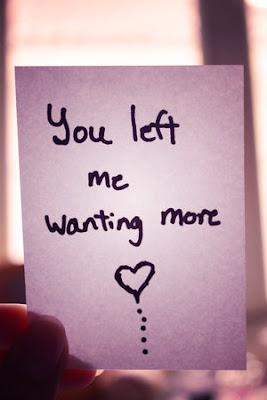 You left
me
wanting more